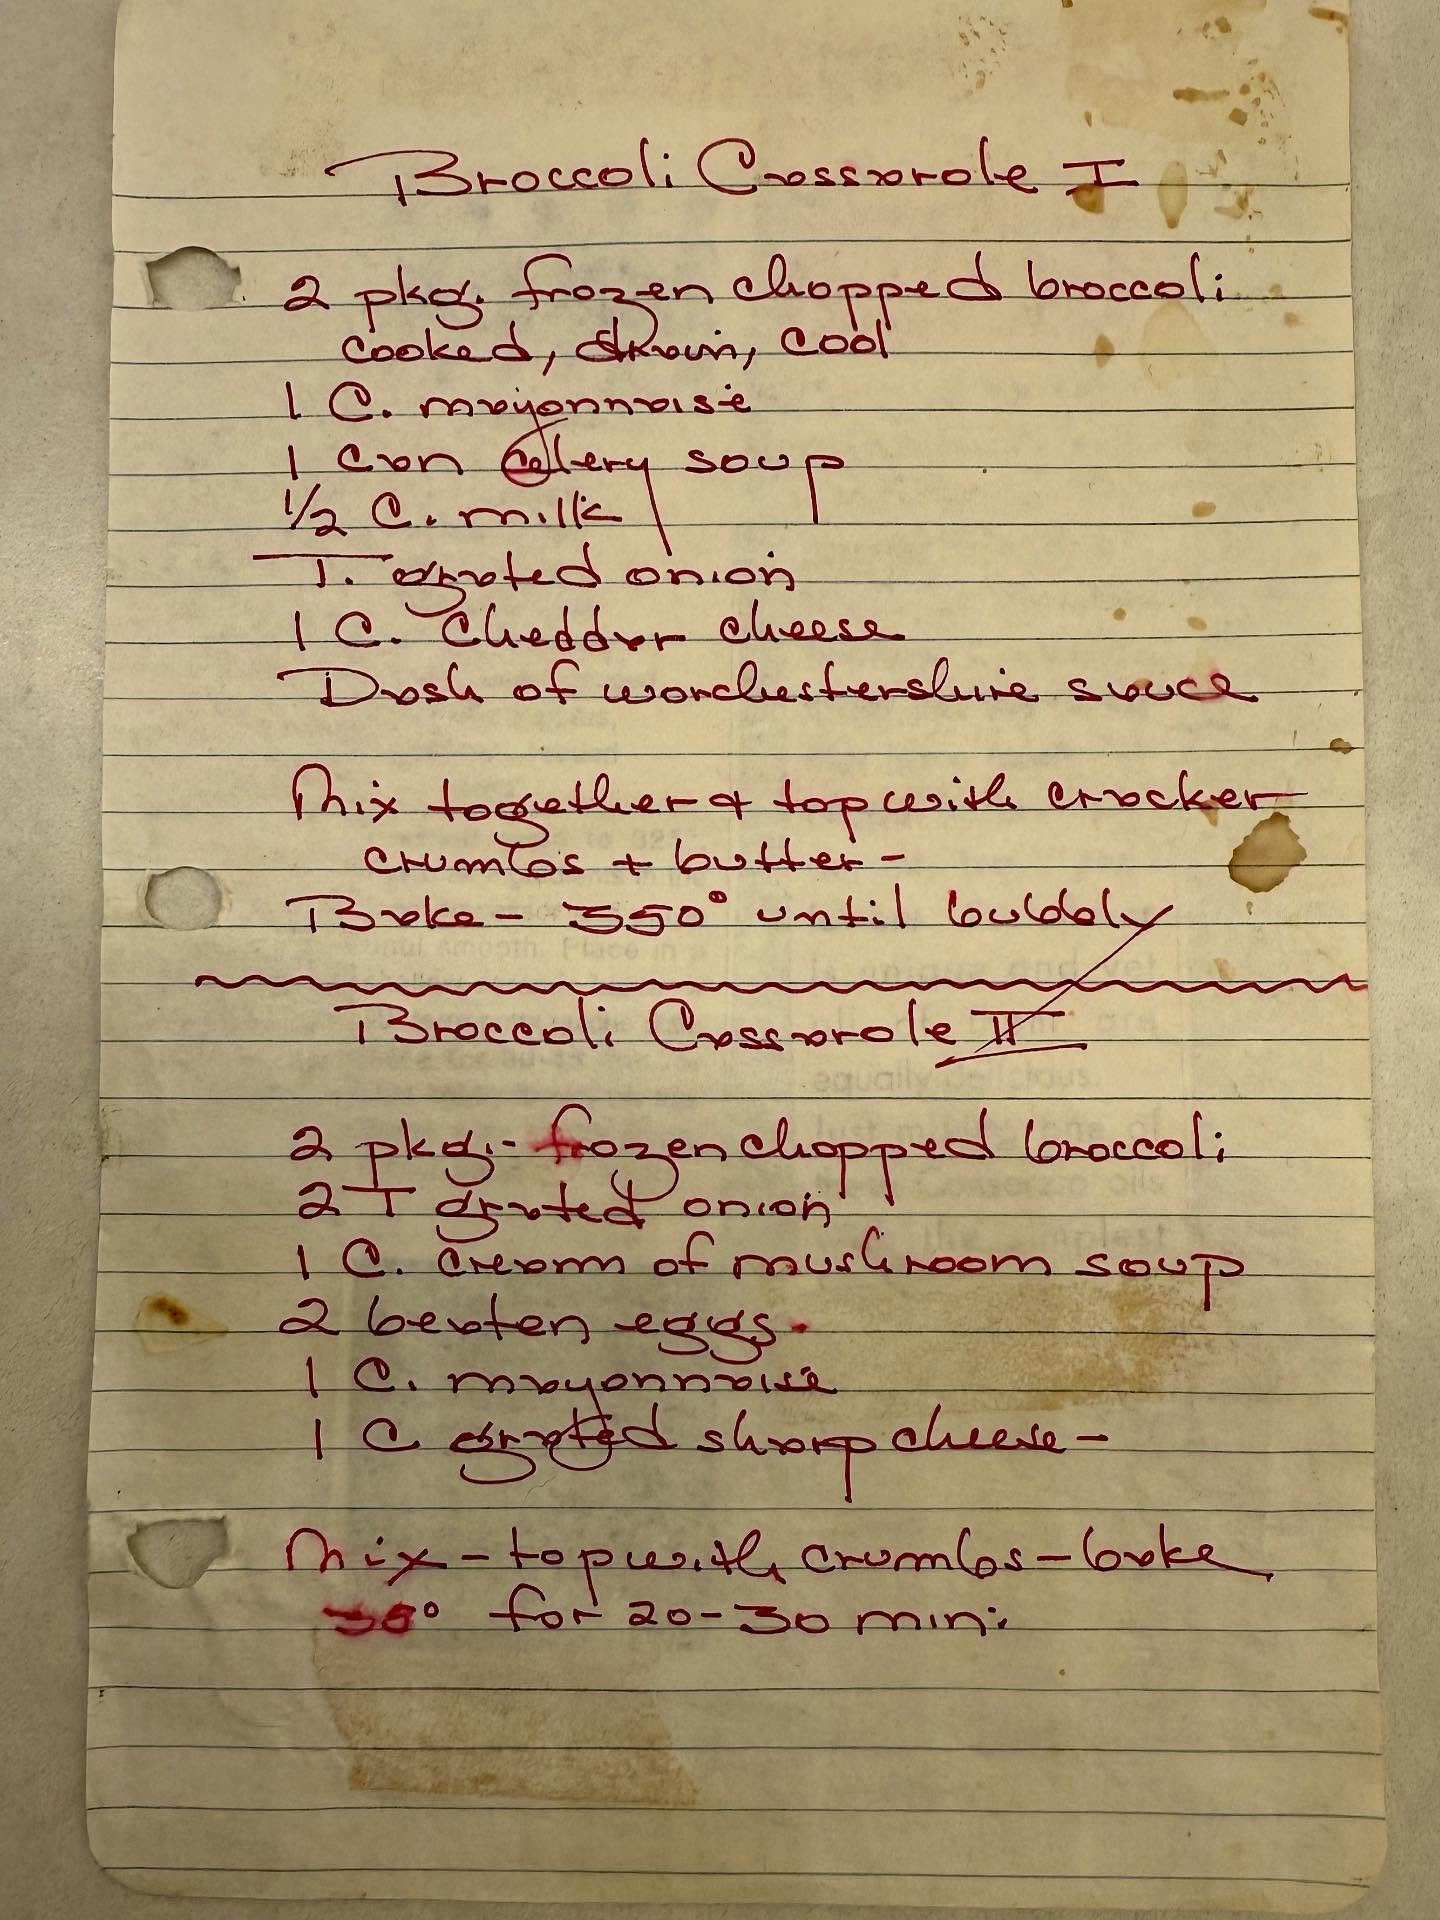 Broccoli Cassarole I
2 pkg. frozen chopped broccoli
cooked, drain, cool
1 C. mayonnaise
1 Can celery soup
1/2 C. milk
T. grated onion
1 C. Cheddar cheese
Dash of worchestershire sauce
Mix together & top with cracker
crumbs + butter -
Bake - 350° until bubbly
Broccoli Cassarole II
2 pkg. - frozen chopped broccoli
2 T grated onion
1 C. cream of mushroom soup
2 beaten eggs.
1 C. mayonnaise
1 C grated sharp cheese -
Mix - top with crumbs - bake
for 20-30 min.